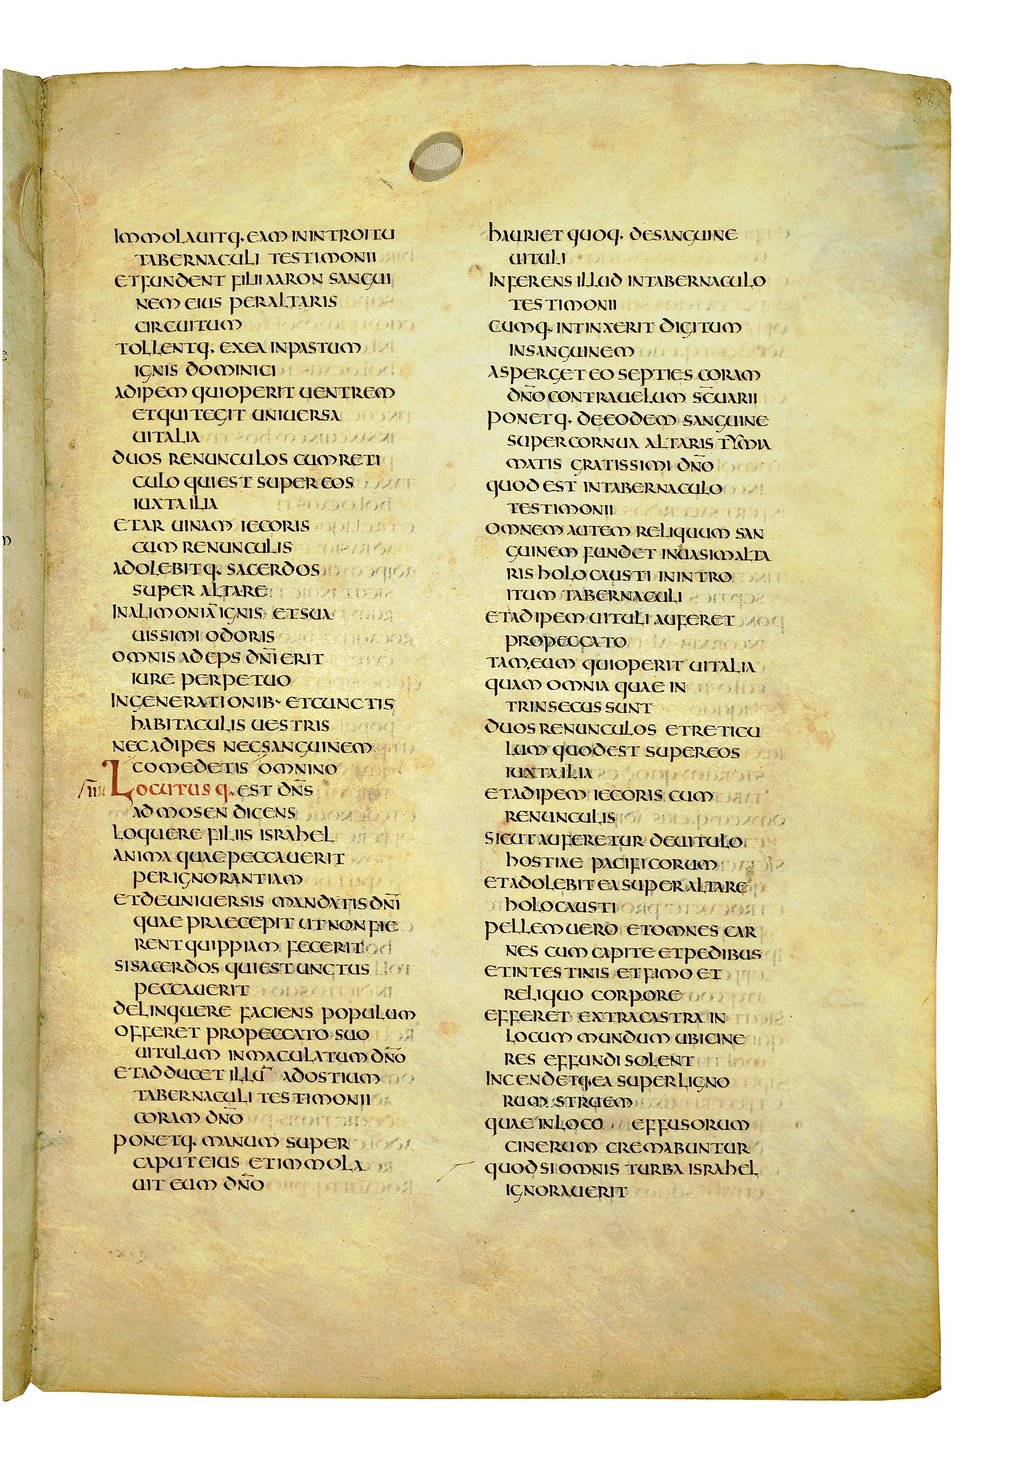 88
IMMOLAUITQ. EAM IN INTROITU
TABERNACULI TESTIMONII
ET FUNDENT FILII AARON SANGUI
NEM EIUS PER ALTARIS
CIRCUITUM
TOLLENTQ. EX EA IN PASTUM
IGNIS DOMINICI
ADIPEM QUI OPERIT UENTREM
ET QUI TEGIT UNIUERSA
UITALIA
DUOS RENUNCULOS CUM RETI
CULO QUI EST SUPER EOS
IUXTA ILIA
ET ARUINAM IECORIS
CUM RENUNCULIS
ADOLEBITQ. SACERDOS
SUPER ALTARE
IN ALIMONIĀ IGNIS ET SUA
UISSIMI ODORIS
OMNIS ADEPS DN̄I ERIT
IURE PERPETUO
IN GENERATIONIB· ET CUNCTIS
HABITACULIS UESTRIS
NEC ADIPES NEC SANGUINEM
COMEDETIS OMNINO
LOCUTUS Q. EST DN̄S
AD MOSEN DICENS
LOQUERE FILIIS ISRAHEL
ANIMA QUAE PECCAUERIT
PER IGNORANTIAM
ET DE UNIUERSIS MANDATIS DN̄I
QUAE PRAECEPIT UT NON FIE
RENT QUIPPIAM FECERIT
SI SACERDOS QUI EST UNCTUS
PECCAUERIT
DELINQUERE FACIENS POPULUM
OFFERET PRO PECCATO SUO
UITULUM INMACULATUM DN̄O
ET ADDUCET ILLŪ AD OSTIUM
TABERNACULI TESTIMONII
CORAM DN̄O
PONETQ. MANUM SUPER
CAPUT EIUS ET IMMOLA
UIT EUM DN̄O
HAURIET QUOQ. DE SANGUINE
UITULI
INFERENS ILLUD IN TABERNACULO
TESTIMONII
CUMQ. INTINXERIT DIGITUM
IN SANGUINEM
ASPERGET EO SEPTIES CORAM
DN̄O CONTRA UELUM SC̄UARII
PONETQ. DE EODEM SANGUINE
SUPER CORNUA ALTARIS TYMIA
MATIS GRATISSIMI DN̄O
QUOD EST IN TABERNACULO
TESTIMONII
OMNEM AUTEM RELIQUUM SAN
GUINEM FUNDET IN UASIM ALTA
RIS HOLOCAUSTI IN INTRO
ITUM TABERNACULI
ET ADIPEM UITULI AUFERET
PRO PECCATO
TAM EUM QUI OPERIT UITALIA
QUAM OMNIA QUAE IN
TRINSECUS SUNT
DUOS RENUNCULOS ET RETICU
LUM QUOD EST SUPER EOS
IUXTA ILIA
ET ADIPEM IECORIS CUM
RENUNCULIS
SICUT AUFERETUR DE UITULO
HOSTIAE PACIFICORUM
ET ADOLEBIT EA SUPER ALTARE
HOLOCAUSTI
PELLEM UERO ET OMNES CAR
NES CUM CAPITE ET PEDIBUS
ET INTESTINIS ET FIMO ET
RELIQUO CORPORE
EFFERET EXTRA CASTRA IN
LOCUM MUNDUM UBI CINE
RES EFFUNDI SOLENT
INCENDETQ. EA SUPER LIGNO
RUM STRUEM
QUAE IN LOCO EFFUSORUM
CINERUM CREMABUNTUR
QUOD SI OMNIS TURBA ISRAHEL
IGNORAUERIT